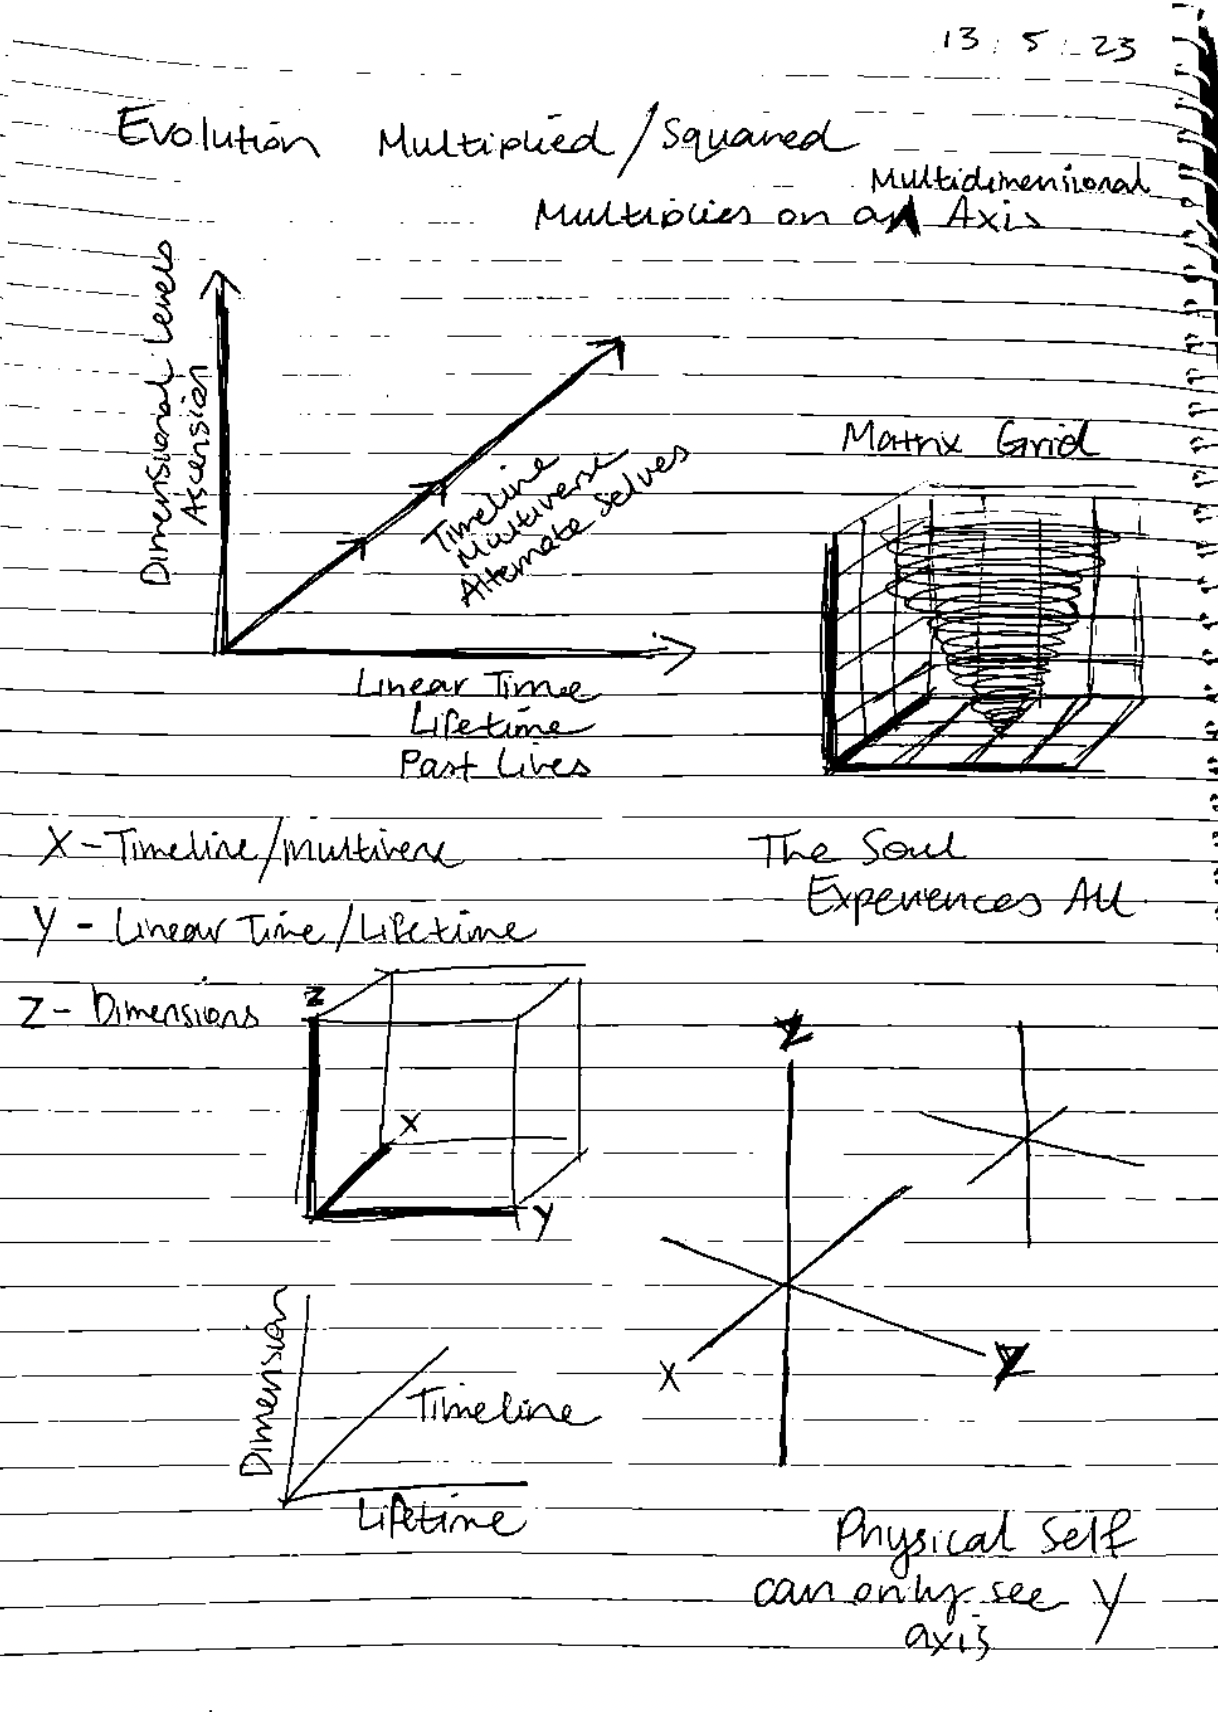 13.5.23
Evolution Multiplied/Squared
Multidimensional
Multiplies on an Axis
Dimensional Levels
Ascension
Timeline
Multiverse
Alternate selves
Linear Time
Lifetime
Past Lives
Matrix Grid
X - Timeline/multiverse
Y - Linear Time/Lifetime
Z - Dimensions
The Soul
Experiences All
Z
X
Y
Z
X
Y
Dimension
Timeline
Lifetime
Physical Self
can only see Y
axis